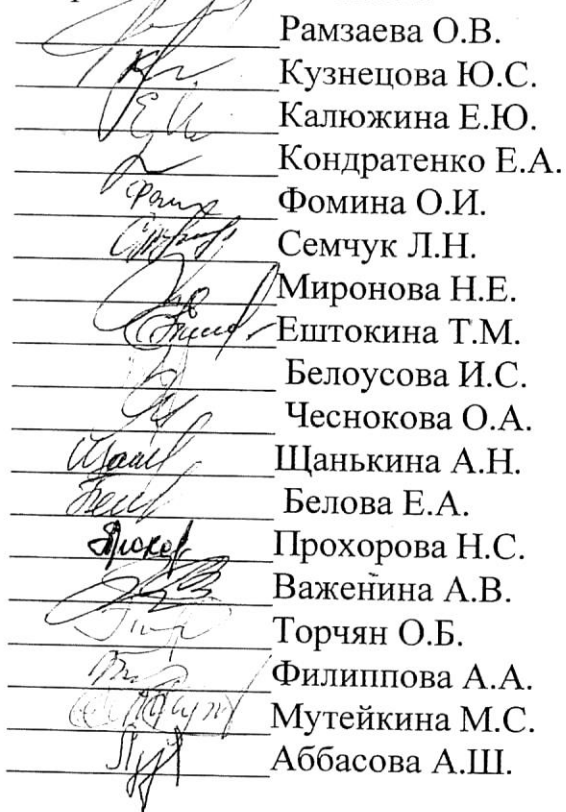 Рамзаева О.В.
Кузнецова Ю.С.
Калюжина Е.Ю.
Кондратенко Е.А.
Фомина О.И.
Семчук Л.Н.
Миронова Н.Е.
Ештокина Т.М.
Белоусова И.С.
Чеснокова О.А.
Щанькина А.Н.
Белова Е.А.
Прохорова Н.С.
Важенина А.В.
Торчян О.Б.
Филиппова А.А.
Мутейкина М.С.
Аббасова А.Ш.